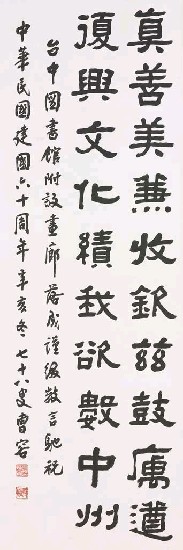 真善美兼收欽茲鼓厲遒
復興文化績我欲數中州
台中圖書館附設畫廊落成謹綴數言馳祝
中華民國建國六十周年辛亥冬七十八叟曹容